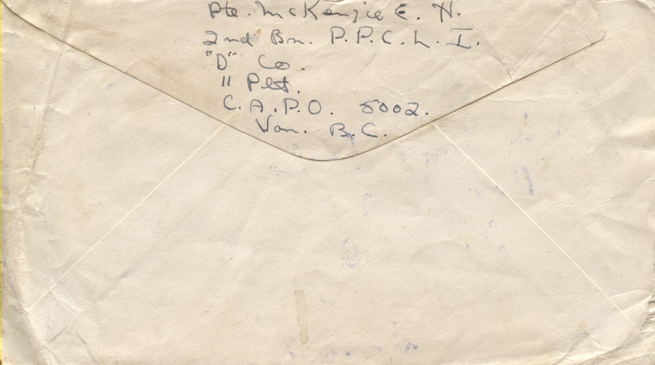 Pte. McKenzie E. H.
2nd Bn. P.P.C.L.I.
"D" Co.
11 Plt.
C.A.P.O. 5002.
Van. B.C.